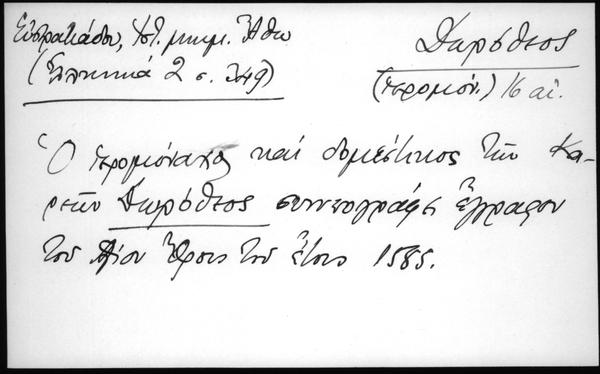 Εὐστρατιάδου, Ἱστ. μνημ. Ἄθω
(Ἑλληνικά 2 σ. 349)
Δωρόθεος
(ἱερομόν.) 16 αἰ.
Ὁ ἱερομόναχος καί δομέστικος τῶν Κα-
ρεῶν Δωρόθεος συνυπογράφει ἔγγραφον
τοῦ Ἁγίου Ὄρους τοῦ ἔτους 1585.